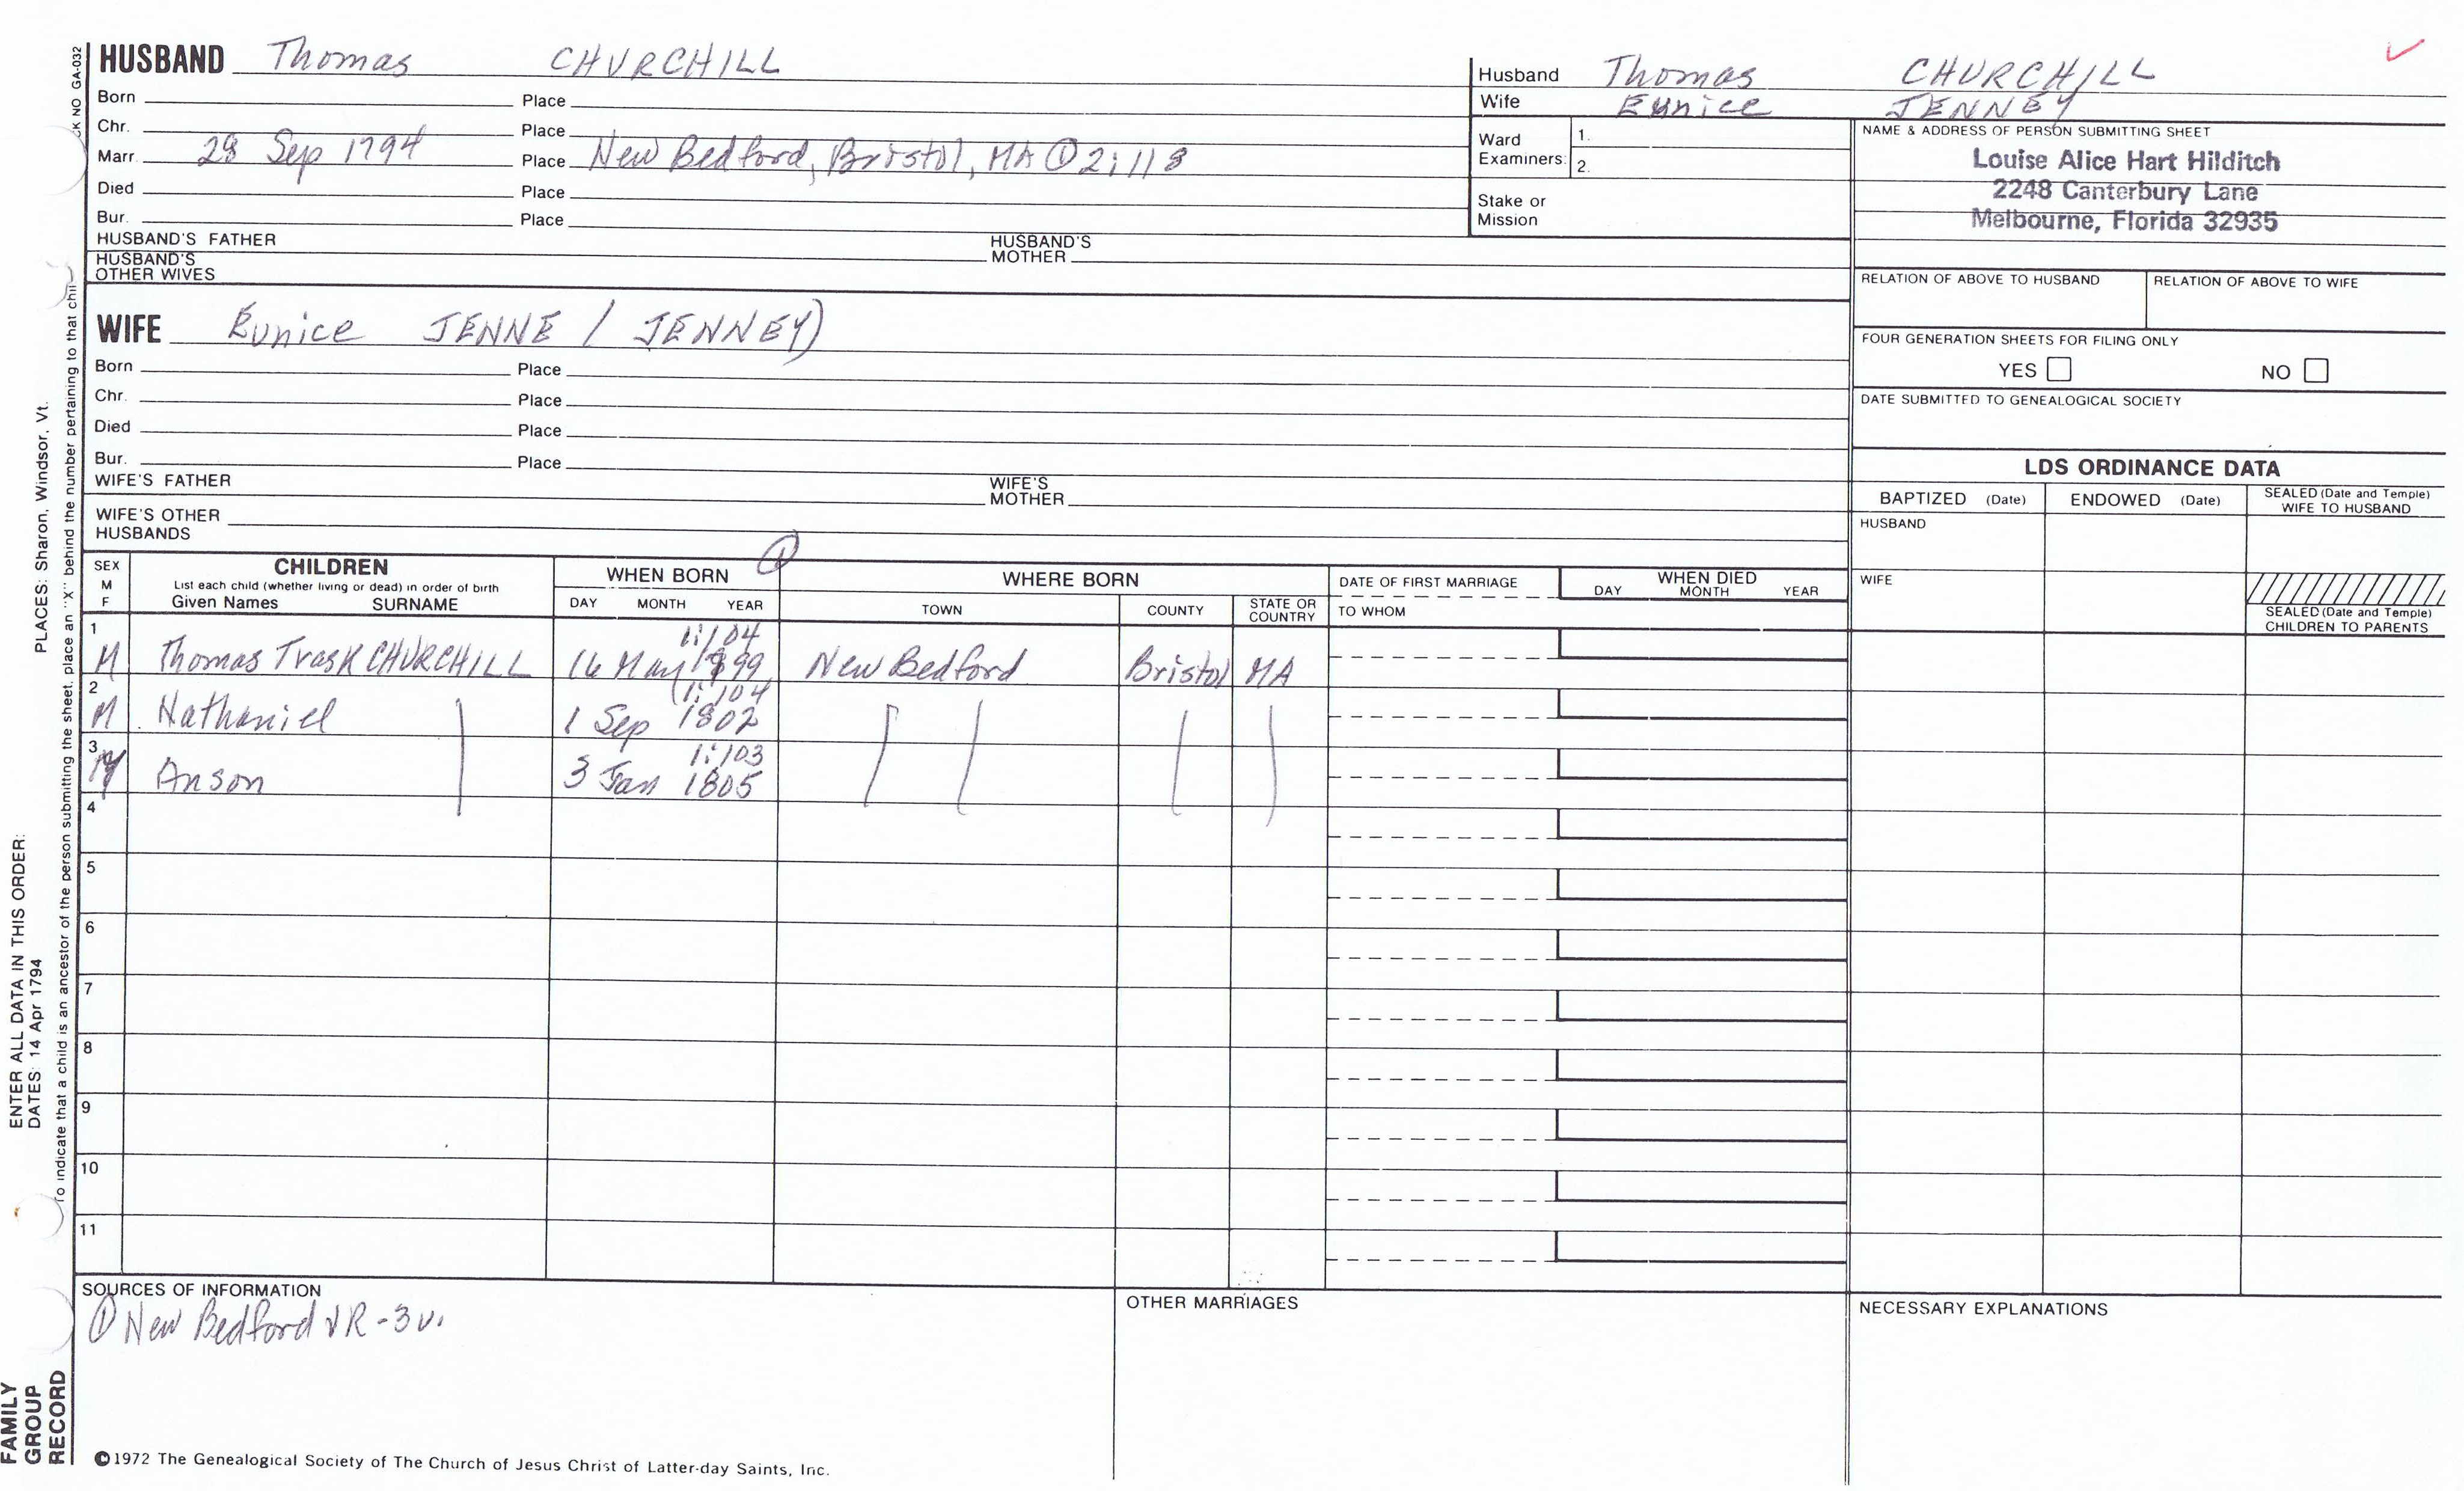 HUSBAND Thomas CHURCHILL
Born Place
Chr. Place
Marr. 28 Sep 1794 Place New Bedford, Bristol, MA ① 2:118
Died Place
Bur. Place
HUSBAND'S FATHER HUSBAND'S MOTHER
HUSBAND'S OTHER WIVES
Husband Thomas CHURCHILL
Wife Eunice JENNEY
Ward Examiners: 1.
2.
Stake or Mission
NAME & ADDRESS OF PERSON SUBMITTING SHEET
Louise Alice Hart Hilditch
2248 Canterbury Lane
Melbourne, Florida 32935
RELATION OF ABOVE TO HUSBAND RELATION OF ABOVE TO WIFE
FOUR GENERATION SHEETS FOR FILING ONLY
YES NO
DATE SUBMITTED TO GENEALOGICAL SOCIETY
WIFE Eunice JENNE / JENNEY)
Born Place
Chr. Place
Died Place
Bur. Place
WIFE'S FATHER WIFE'S MOTHER
WIFE'S OTHER HUSBANDS
LDS ORDINANCE DATA
BAPTIZED (Date) ENDOWED (Date) SEALED (Date and Temple) WIFE TO HUSBAND
HUSBAND
WIFE
SEALED (Date and Temple) CHILDREN TO PARENTS
SEX M F
CHILDREN
List each child (whether living or dead) in order of birth
Given Names SURNAME
WHEN BORN ①
DAY MONTH YEAR
WHERE BORN
TOWN COUNTY STATE OR COUNTRY
DATE OF FIRST MARRIAGE
TO WHOM
WHEN DIED
DAY MONTH YEAR
1 1:104
M Thomas Trask CHURCHILL 16 May 1799 New Bedford Bristol MA
2 1:104
M Nathaniel 1 Sep 1802
3 1:103
M Anson 3 Jan 1805
4
5
6
7
8
9
10
11
SOURCES OF INFORMATION
① New Bedford VR - 3 v.
OTHER MARRIAGES
NECESSARY EXPLANATIONS
©1972 The Genealogical Society of The Church of Jesus Christ of Latter-day Saints, Inc.
FAMILY GROUP RECORD
ENTER ALL DATA IN THIS ORDER:
DATES: 14 Apr 1794 PLACES: Sharon, Windsor, Vt.
To indicate that a child is an ancestor of the person submitting the sheet, place an "X" behind the number pertaining to that chil
CK NO GA-032